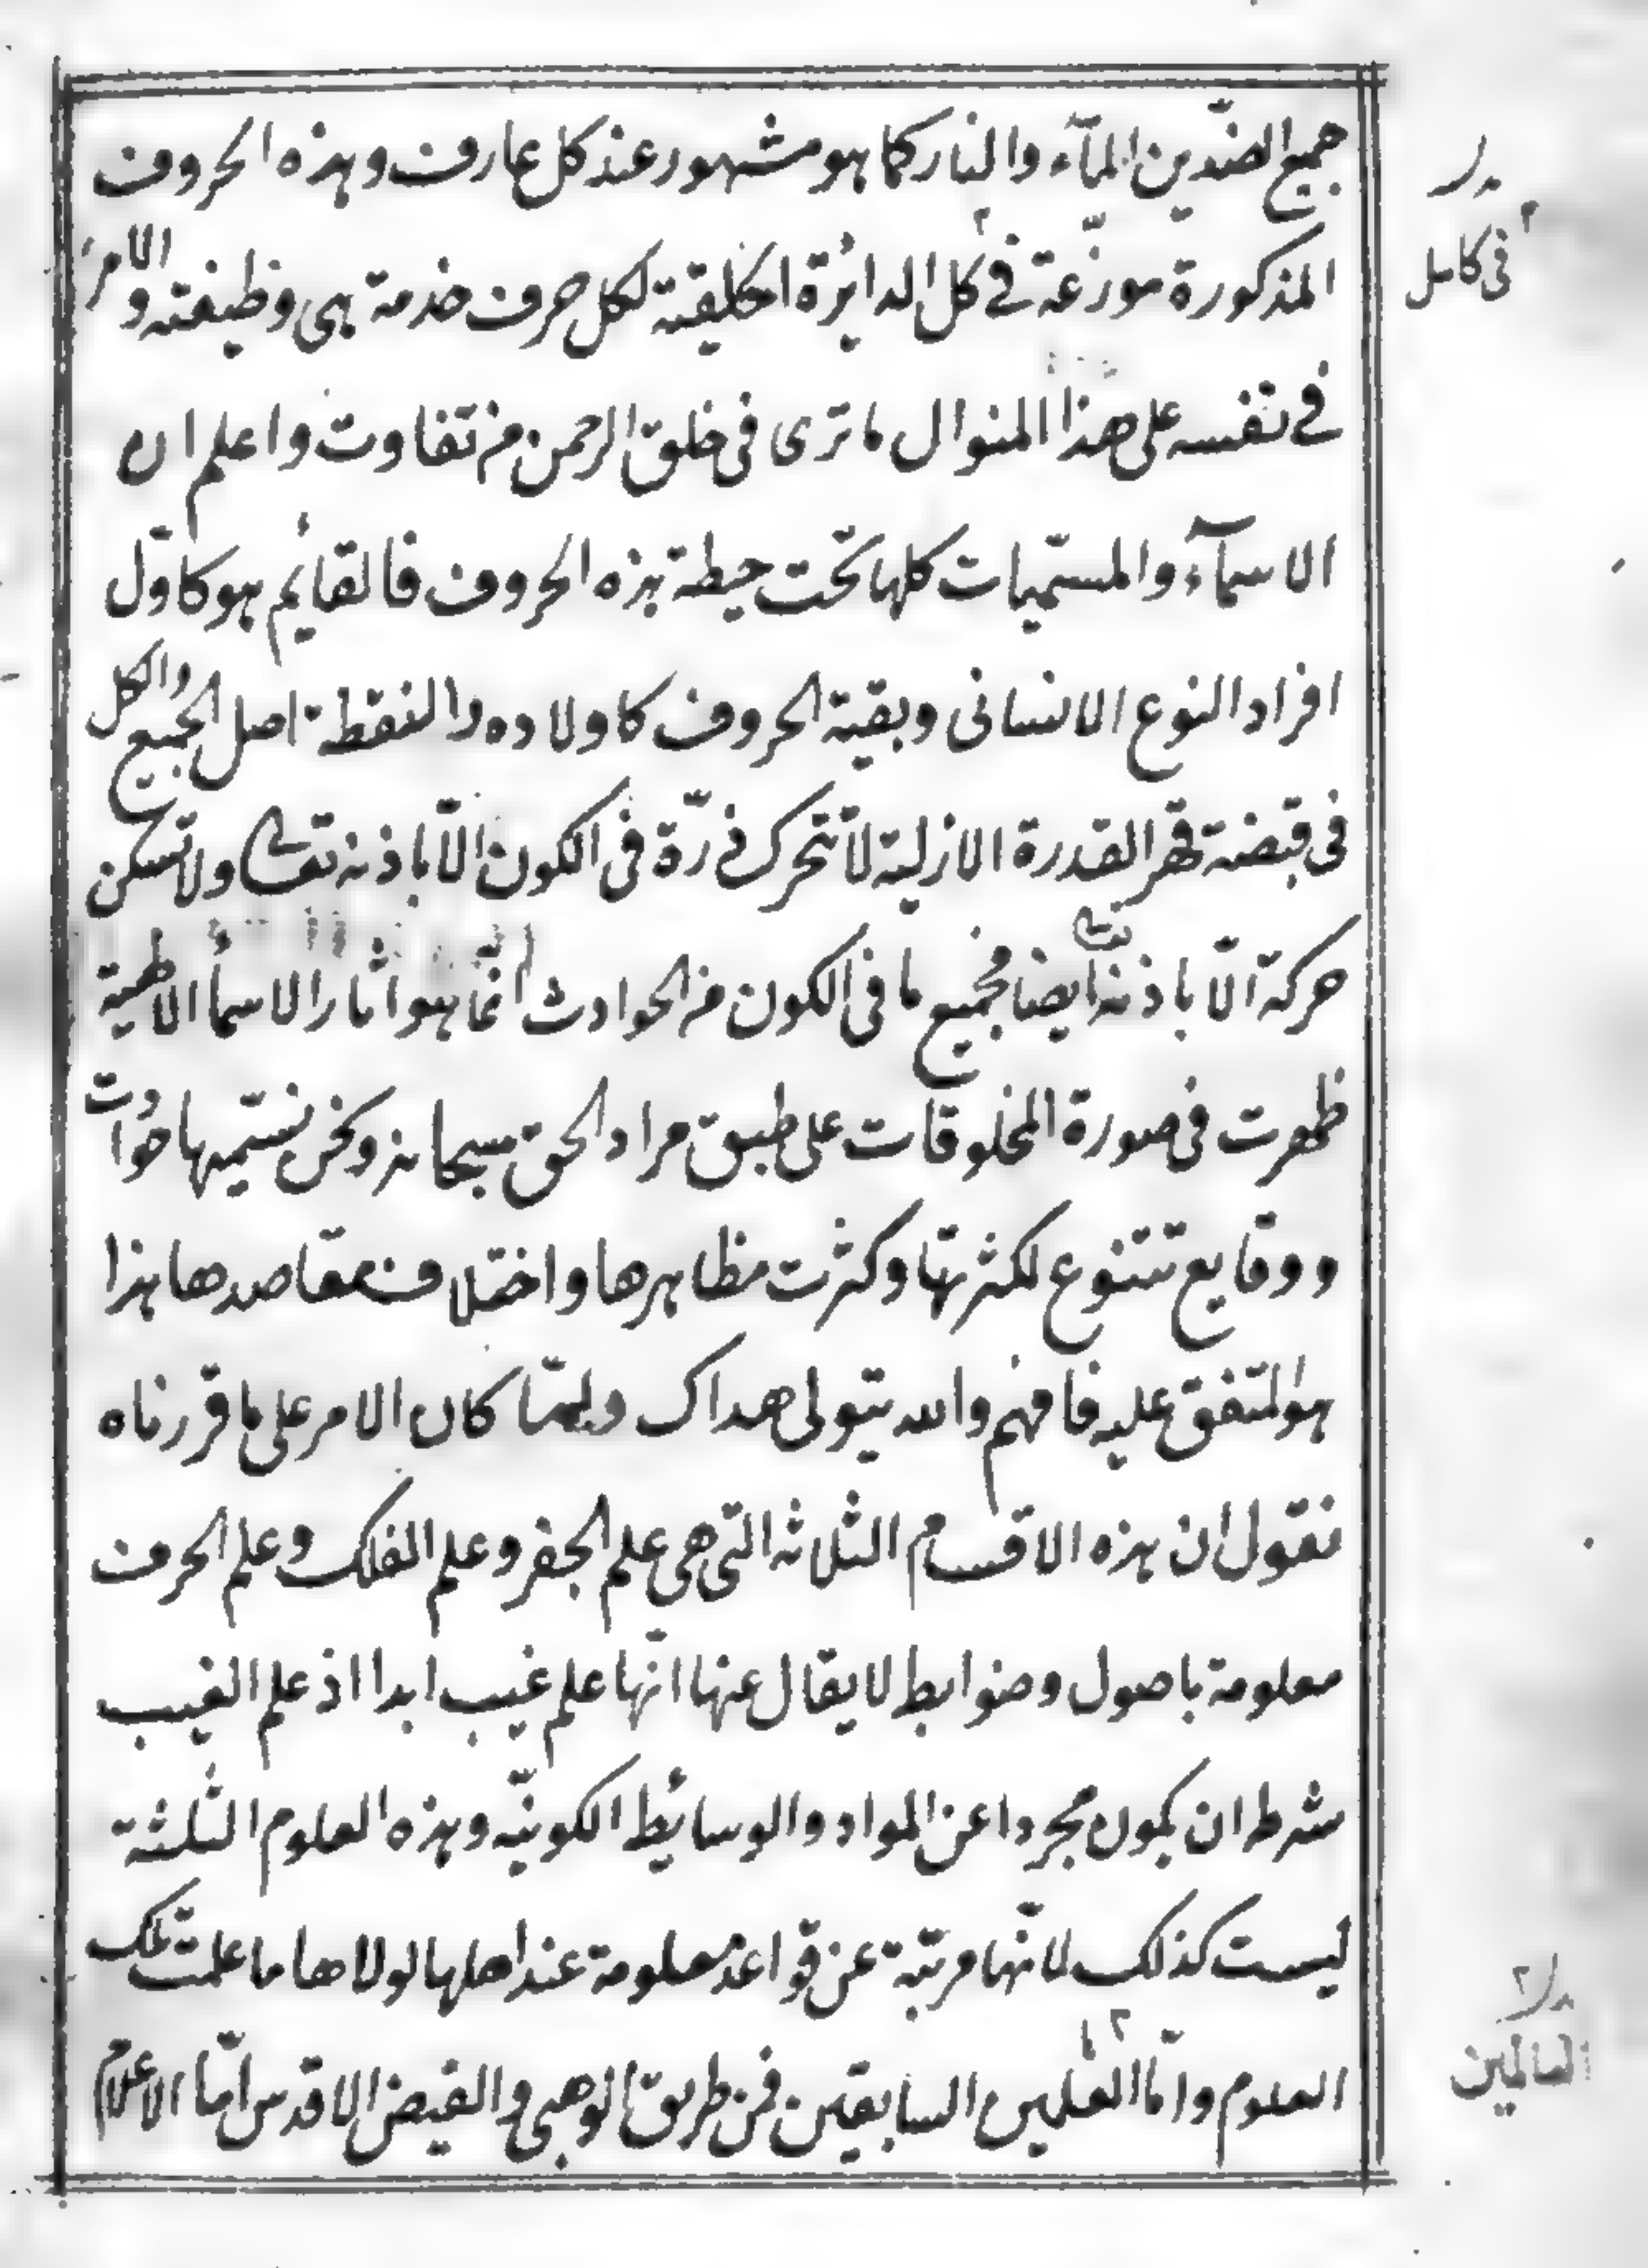 جميع الضّدين المآء والنار كما هو مشهور عند كل عارف وهذه الحروف
المذكورة موزّعة في كل الدائرة الخلقية لكل حرف خدمة هي وظيفته والامر
في نفسه على هذا المنوال ما ترى فى خلق الرحمن من تفاوت واعلم ان
الاسمآء والمسمّيات كلها تحت حيطة هذه الحروف فالقائم هو كاوّل
افراد النوع الانسانى وبقية الحروف كاولاده والنقطة اصل الجميع والكل
فى قبضة قهر القدرة الازلية لا تتحرك ذرّة فى الكون الّا باذنه تعالى ولا تسكن
حركة الّا باذنه تعالى ايضا فجميع ما فى الكون من الحوادث انّما هو اثار الاسمأ الالهية
ظهرت فى صورة المخلوقات على طبق مراد الحق سبحانه ونحن نسمّيها حوادث
ووقايع تتنوع لكثرتها وكثرت مظاهرها واختلاف مقاصدها هذا
هو المتفق عليه فافهم والله يتولى هداك ولمّا كان الامر على ما قررناه
نقول ان هذه الاقسام الثلاثه التى هى علم الجفر وعلم الفلك وعلم الحرف
معلومة باصول وضوابط لا يقال عنها انّها علم غيب ابدا اذ علم الغيب
شرط ان يكون مجردا عن المواد والوسائط الكونيّه وهذه العلوم الثلثة
ليست كذلك لانّها مرتبّة عن قواعد معلومة عند اهلها لولاها ما علمت تلك
العلوم وامّا العلمين السابقين فمن طريق الوهبى والفيض الاقدس امّا الاعلام
فى كامل
العالمين